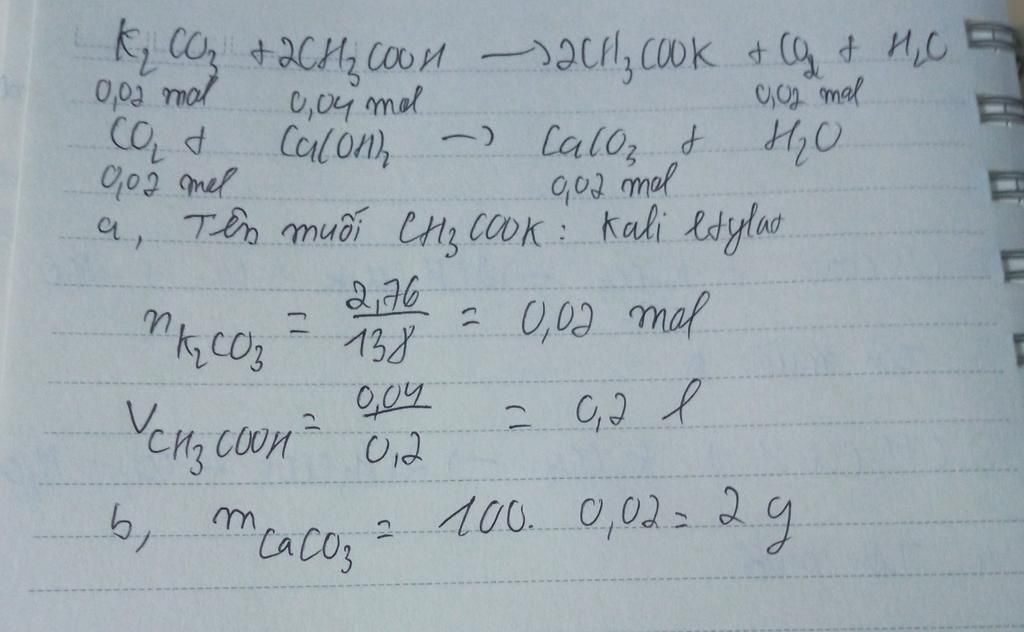 K₂CO₃ + 2CH₃COOH → 2CH₃COOK + CO₂ + H₂O
0,02 mol 0,04 mol 0,02 mol
CO₂ + Ca(OH)₂ → CaCO₃ + H₂O
0,02 mol 0,02 mol
a, Tên muối CH₃COOK: Kali etylat
n K₂CO₃ = 2,76/138 = 0,02 mol
V CH₃COOH = 0,04/0,2 = 0,2 l
b, m CaCO₃ = 100. 0,02 = 2 g